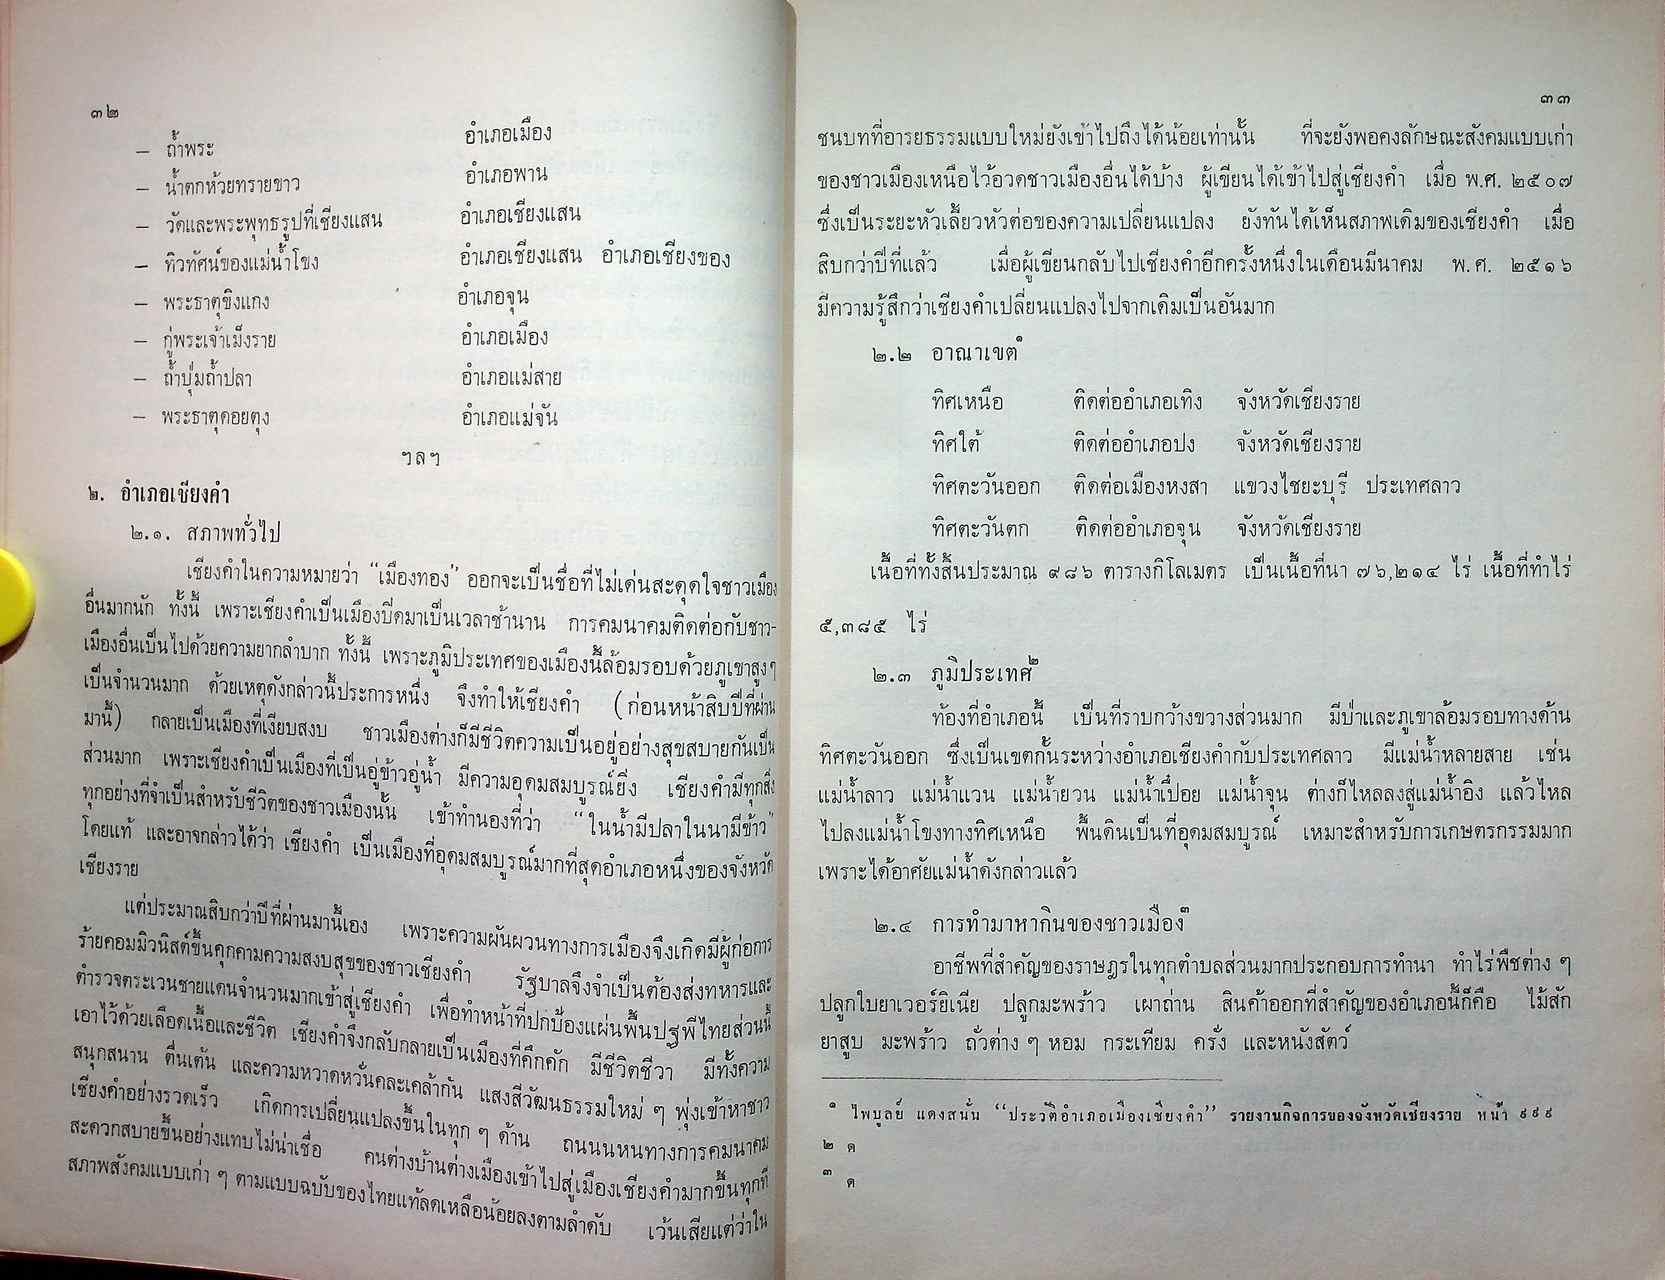 ๓๒
– ถ้ำพระ อำเภอเมือง
– น้ำตกห้วยทรายขาว อำเภอพาน
– วัดและพระพุทธรูปที่เชียงแสน อำเภอเชียงแสน
– ทิวทัศน์ของแม่น้ำโขง อำเภอเชียงแสน อำเภอเชียงของ
– พระธาตุขิงแกง อำเภอจุน
– กู่พระเจ้าเม็งราย อำเภอเมือง
– ถ้ำปุ่มถ้ำปลา อำเภอแม่สาย
– พระธาตุดอยตุง อำเภอแม่จัน
ฯลฯ
๒. อำเภอเชียงคำ
๒.๑. สภาพทั่วไป
เชียงคำในความหมายว่า “เมืองทอง” ออกจะเป็นชื่อที่ไม่เด่นสะดุดใจชาวเมือง
อื่นมากนัก ทั้งนี้ เพราะเชียงคำเป็นเมืองปิดมาเป็นเวลาช้านาน การคมนาคมติดต่อกับชาว-
เมืองอื่นเป็นไปด้วยความยากลำบาก ทั้งนี้ เพราะภูมิประเทศของเมืองนี้ล้อมรอบด้วยภูเขาสูงๆ
เป็นจำนวนมาก ด้วยเหตุดังกล่าวนี้ประการหนึ่ง จึงทำให้เชียงคำ (ก่อนหน้าสิบปีที่ผ่าน
มานี้) กลายเป็นเมืองที่เงียบสงบ ชาวเมืองต่างก็มีชีวิตความเป็นอยู่อย่างสุขสบายกันเป็น
ส่วนมาก เพราะเชียงคำเป็นเมืองที่เป็นอู่ข้าวอู่น้ำ มีความอุดมสมบูรณ์ยิ่ง เชียงคำมีทุกสิ่ง
ทุกอย่างที่จำเป็นสำหรับชีวิตของชาวเมืองนั้น เข้าทำนองที่ว่า “ในน้ำมีปลาในนามีข้าว”
โดยแท้ และอาจกล่าวได้ว่า เชียงคำ เป็นเมืองที่อุดมสมบูรณ์มากที่สุดอำเภอหนึ่งของจังหวัด
เชียงราย
แต่ประมาณสิบกว่าปีที่ผ่านมานี้เอง เพราะความผันผวนทางการเมืองจึงเกิดมีผู้ก่อการ
ร้ายคอมมิวนิสต์ขึ้นคุกคามความสงบสุขของชาวเชียงคำ รัฐบาลจึงจำเป็นต้องส่งทหารและ
ตำรวจตระเวนชายแดนจำนวนมากเข้าสู่เชียงคำ เพื่อทำหน้าที่ปกป้องแผ่นพื้นปฐพีไทยส่วนนี้
เอาไว้ด้วยเลือดเนื้อและชีวิต เชียงคำจึงกลับกลายเป็นเมืองที่คึกคัก มีชีวิตชีวา มีทั้งความ
สนุกสนาน ตื่นเต้น และความหวาดหวั่นคละเคล้ากัน แสงสีวัฒนธรรมใหม่ ๆ พุ่งเข้าหาชาว
เชียงคำอย่างรวดเร็ว เกิดการเปลี่ยนแปลงขึ้นในทุก ๆ ด้าน ถนนหนทางการคมนาคม
สะดวกสบายขึ้นอย่างแทบไม่น่าเชื่อ คนต่างบ้านต่างเมืองเข้าไปสู่เมืองเชียงคำมากขึ้นทุกที
สภาพสังคมแบบเก่า ๆ ตามแบบฉบับของไทยแท้ลดเหลือน้อยลงตามลำดับ เว้นเสียแต่ว่าใน
๓๓
ชนบทที่อารยธรรมแบบใหม่ยังเข้าไปถึงได้น้อยเท่านั้น ที่จะยังพอคงลักษณะสังคมแบบเก่า
ของชาวเมืองเหนือไว้อวดชาวเมืองอื่นได้บ้าง ผู้เขียนได้เข้าไปสู่เชียงคำ เมื่อ พ.ศ. ๒๕๐๗
ซึ่งเป็นระยะหัวเลี้ยวหัวต่อของความเปลี่ยนแปลง ยังทันได้เห็นสภาพเดิมของเชียงคำ เมื่อ
สิบกว่าปีที่แล้ว เมื่อผู้เขียนกลับไปเชียงคำอีกครั้งหนึ่งในเดือนมีนาคม พ.ศ. ๒๕๑๖
มีความรู้สึกว่าเชียงคำเปลี่ยนแปลงไปจากเดิมเป็นอันมาก
๒.๒ อาณาเขต๑
ทิศเหนือ ติดต่ออำเภอเทิง จังหวัดเชียงราย
ทิศใต้ ติดต่ออำเภอปง จังหวัดเชียงราย
ทิศตะวันออก ติดต่อเมืองหงสา แขวงไชยะบุรี ประเทศลาว
ทิศตะวันตก ติดต่ออำเภอจุน จังหวัดเชียงราย
เนื้อที่ทั้งสิ้นประมาณ ๙๘๖ ตารางกิโลเมตร เป็นเนื้อที่นา ๗๖,๒๑๔ ไร่ เนื้อที่ทำไร่
๕,๓๘๕ ไร่
๒.๓ ภูมิประเทศ๒
ท้องที่อำเภอนี้ เป็นที่ราบกว้างขวางส่วนมาก มีป่าและภูเขาล้อมรอบทางด้าน
ทิศตะวันออก ซึ่งเป็นเขตกั้นระหว่างอำเภอเชียงคำกับประเทศลาว มีแม่น้ำหลายสาย เช่น
แม่น้ำลาว แม่น้ำแวน แม่น้ำยวน แม่น้ำเปื๋อย แม่น้ำจุน ต่างก็ไหลลงสู่แม่น้ำอิง แล้วไหล
ไปลงแม่น้ำโขงทางทิศเหนือ พื้นดินเป็นที่อุดมสมบูรณ์ เหมาะสำหรับการเกษตรกรรมมาก
เพราะได้อาศัยแม่น้ำดังกล่าวแล้ว
๒.๔ การทำมาหากินของชาวเมือง๓
อาชีพที่สำคัญของราษฎรในทุกตำบลส่วนมากประกอบการทำนา ทำไร่พืชต่าง ๆ
ปลูกใบยาเวอร์ยิเนีย ปลูกมะพร้าว เผาถ่าน สินค้าออกที่สำคัญของอำเภอนี้ก็คือ ไม้สัก
ยาสูบ มะพร้าว ถั่วต่าง ๆ หอม กระเทียม ครั่ง และหนังสัตว์
๑ ไพบูลย์ แดงสนั่น “ประวัติอำเภอเมืองเชียงคำ” รายงานกิจการของจังหวัดเชียงราย หน้า ๙๙๙
๒ ด
๓ ด